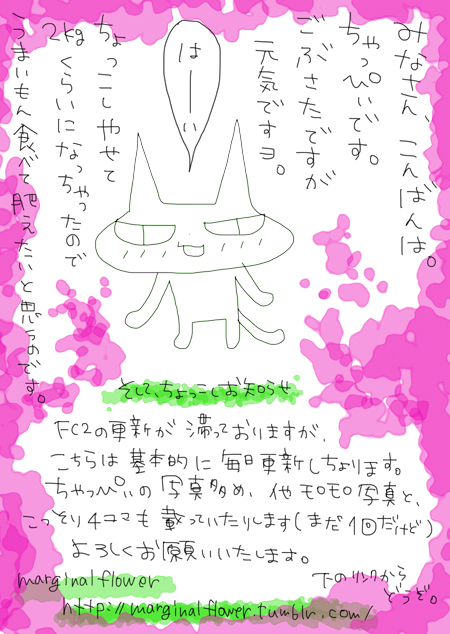 みなさん、こんばんは。
ちゃっぴぃです。
ごぶさたですが
元気ですヨ。
はーい
ちょっこしやせて
2kgくらいになっちゃったので
うまいもん食べて肥えたいと思うのです。
そして、ちょっこしお知らせ
FC2の更新が滞っておりますが、
こちらは基本的に毎日更新しちょります。
ちゃっぴぃの写真多め、他モロモロ写真と、
こっそり4コマも載っていたりします(まだ1回だけど)
よろしくお願いいたします。
marginalflower
下のリンクから
どうぞ。
http://marginalflower.tumblr.com/